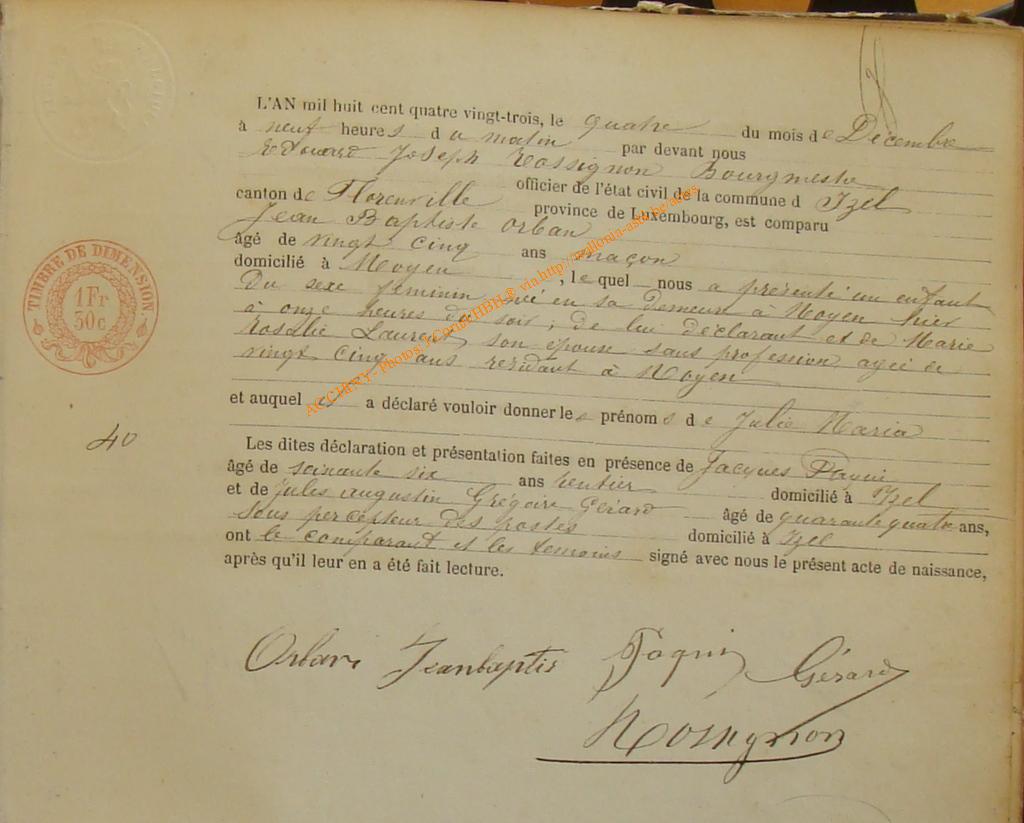 L'AN mil huit cent quatre vingt-trois, le quatre du mois de Décembre
à neuf heures du matin par devant nous
Edouard Joseph Rossignon Bourgmestre
officier de l'état civil de la commune d Izel
canton de Florenville province de Luxembourg, est comparu
Jean Baptiste Orban
âgé de vingt cinq ans maçon
domicilié à Moyen , lequel nous a présenté un enfant
Du sexe féminin né en sa demeure à Moyen hier
à onze heures du soir, de lui déclarant et de Marie
Rosalie Laurent son épouse sans profession agée de
vingt cinq ans résidant à Moyen
et auquel il a déclaré vouloir donner les prénoms de Julie Maria
Les dites déclaration et présentation faites en présence de Jacques
âgé de soixante six ans rentier domicilié à Izel
et de Jules Augustin Grégoire Gérard âgé de quarante quatre ans,
Sous percepteur des postes domicilié à Izel
ont le comparant et les temoins signé avec nous le présent acte de naissance,
après qu'il leur en a été fait lecture.
TIMBRE DE DIMENSION
1Fr
30c
40
Orban Jeanbaptis Gérard
Rossignon